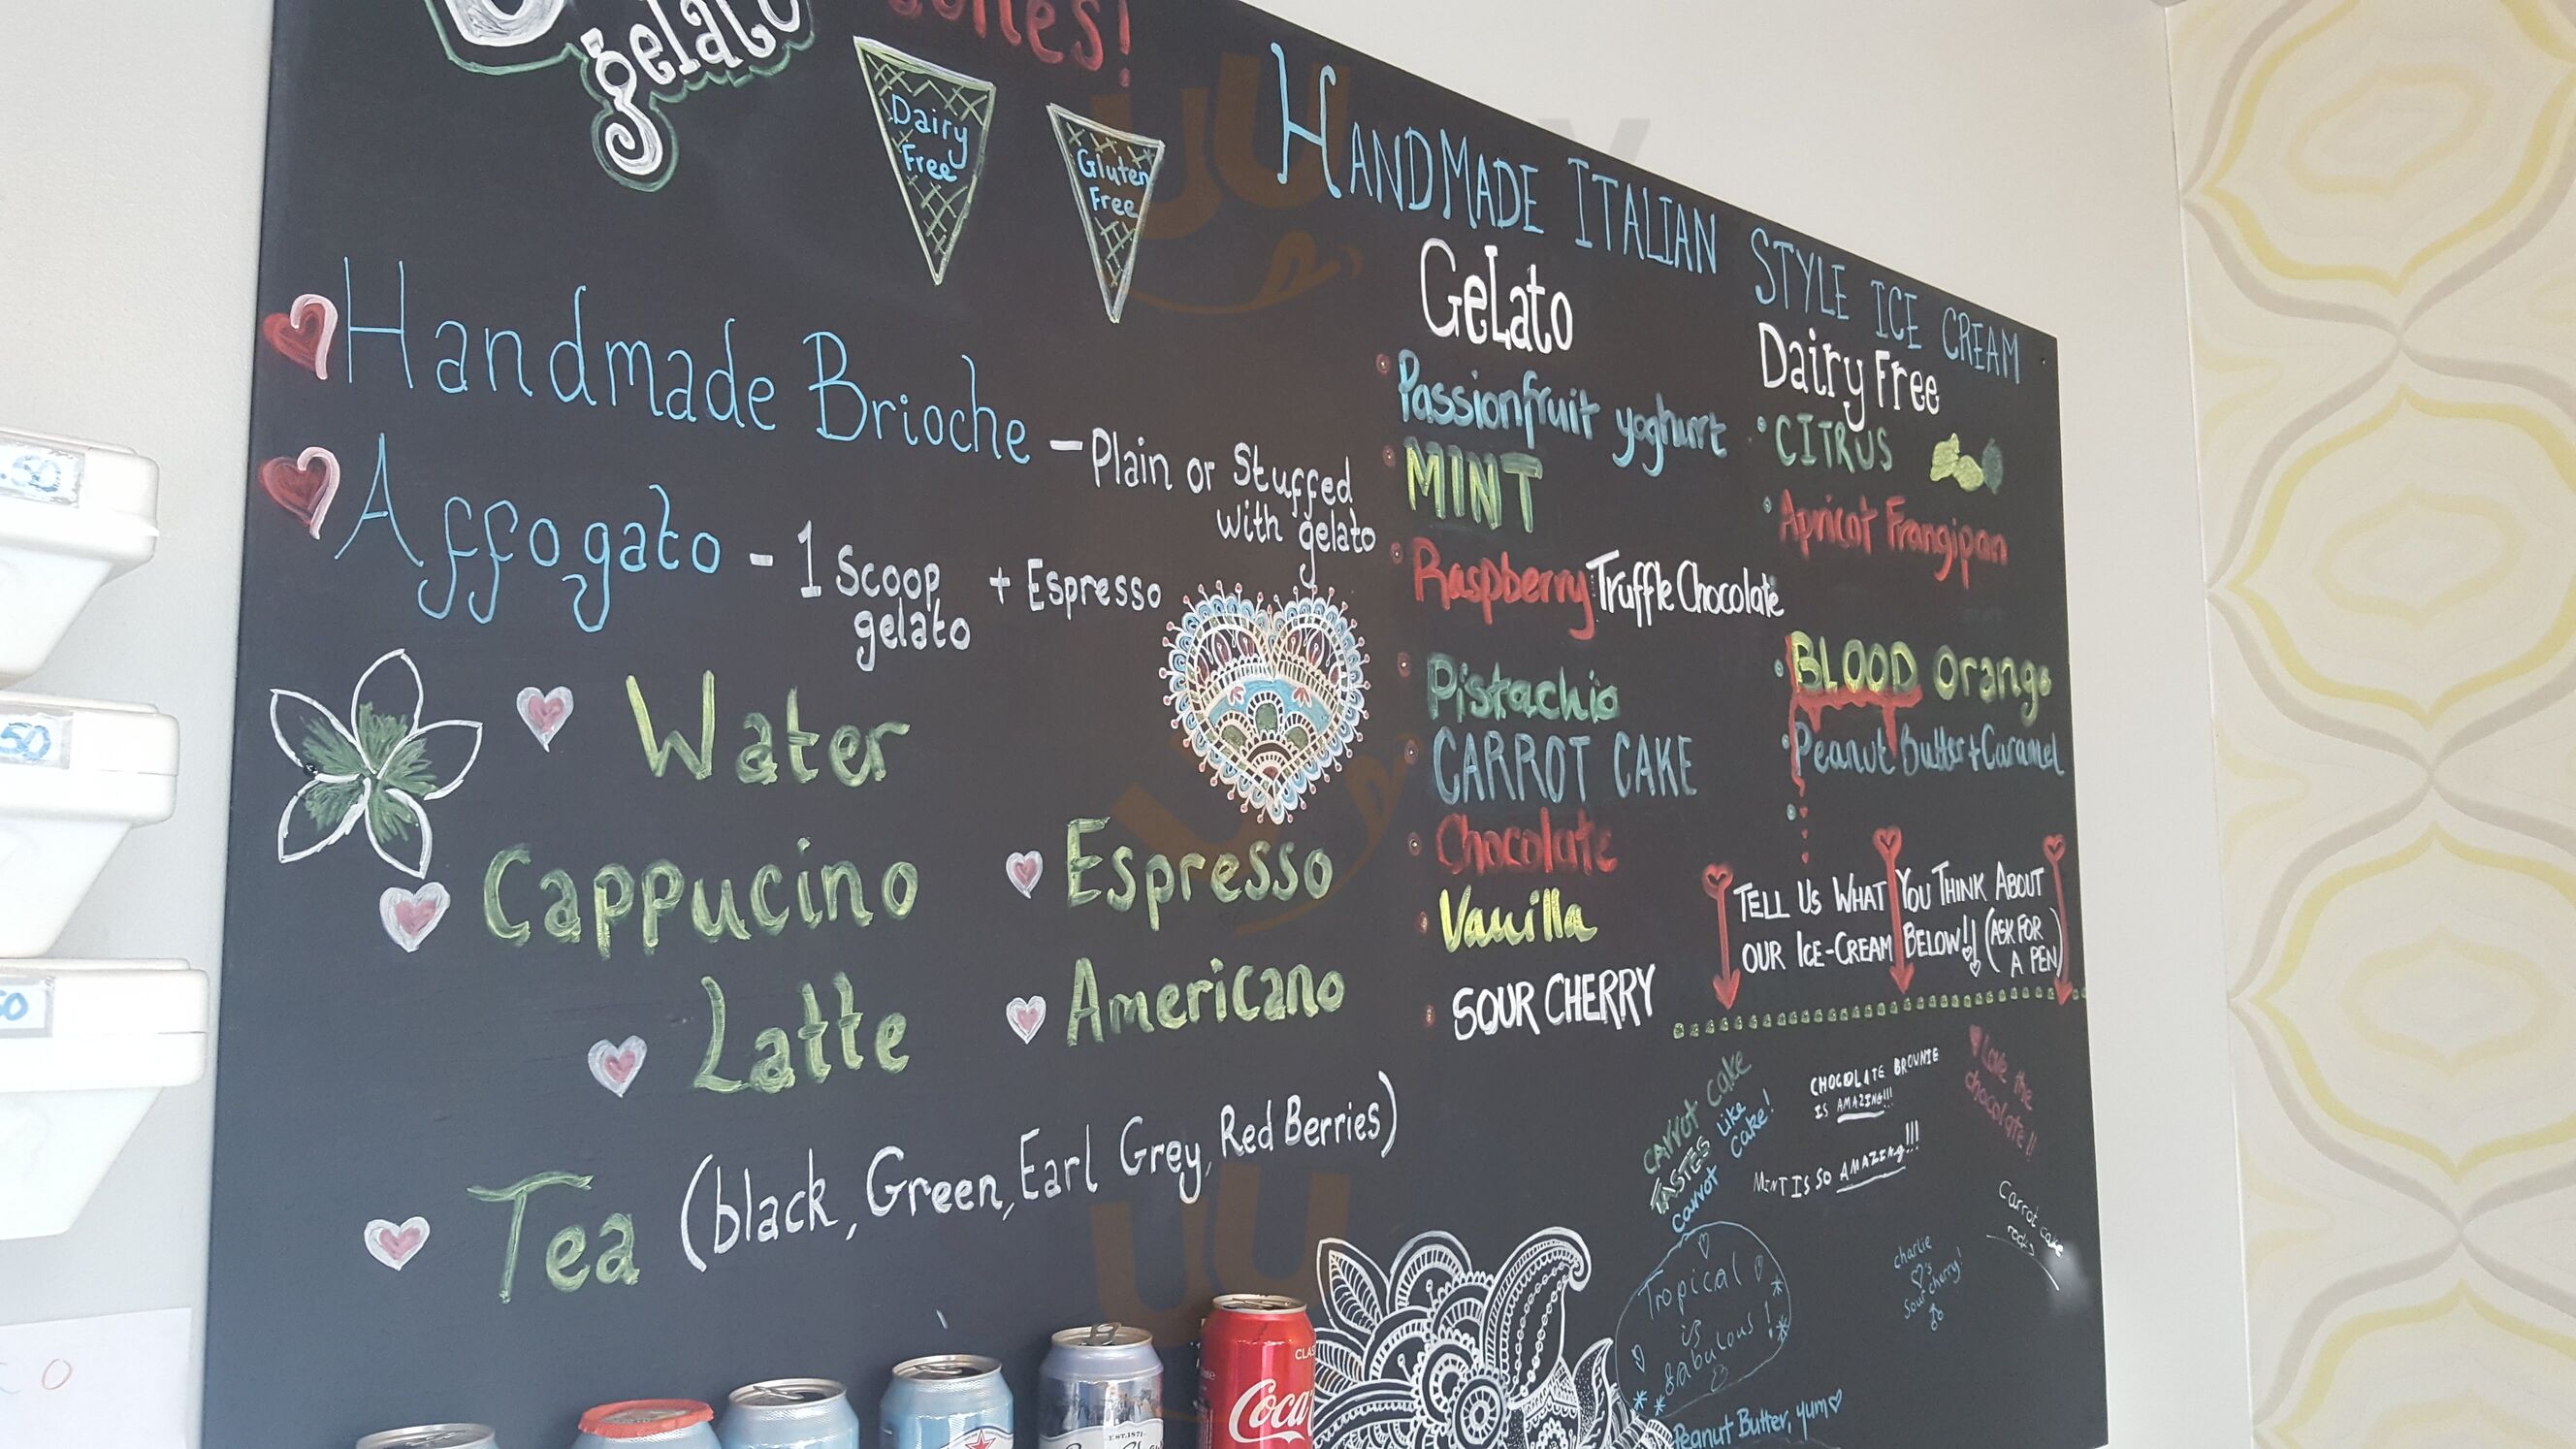 gelato
Dairy
Free
Gluten
Free
Handmade Brioche - Plain or Stuffed
with gelato
Affogato - 1 Scoop + Espresso
gelato
Water
Cappucino
Espresso
Latte
Americano
Tea (black, Green, Earl Grey, Red Berries)
HANDMADE ITALIAN STYLE ICE CREAM
GeLato
Passionfruit yoghurt
MINT
Raspberry Truffle Chocolate
Pistachio
CARROT CAKE
Chocolate
Vanilla
SOUR CHERRY
Dairy Free
CITRUS
Apricot Frangipan
BLOOD Orange
Peanut Butter + Caramel
TELL US WHAT YOU THINK ABOUT
OUR ICE-CREAM BELOW!! (ASK FOR
A PEN)
CARROT CAKE
TASTES LIKE
Carrot Cake!
CHOCOLATE BROWNIE
IS AMAZING!!!
Love the
chocolate!!
MINT IS SO AMAZING!!!
Carrot cake
rocks
charlie
♡'s
Sour cherry!
Tropical
is
fabulous!
Peanut Butter, yum♡
.50
50
50
Coca
EST.1871